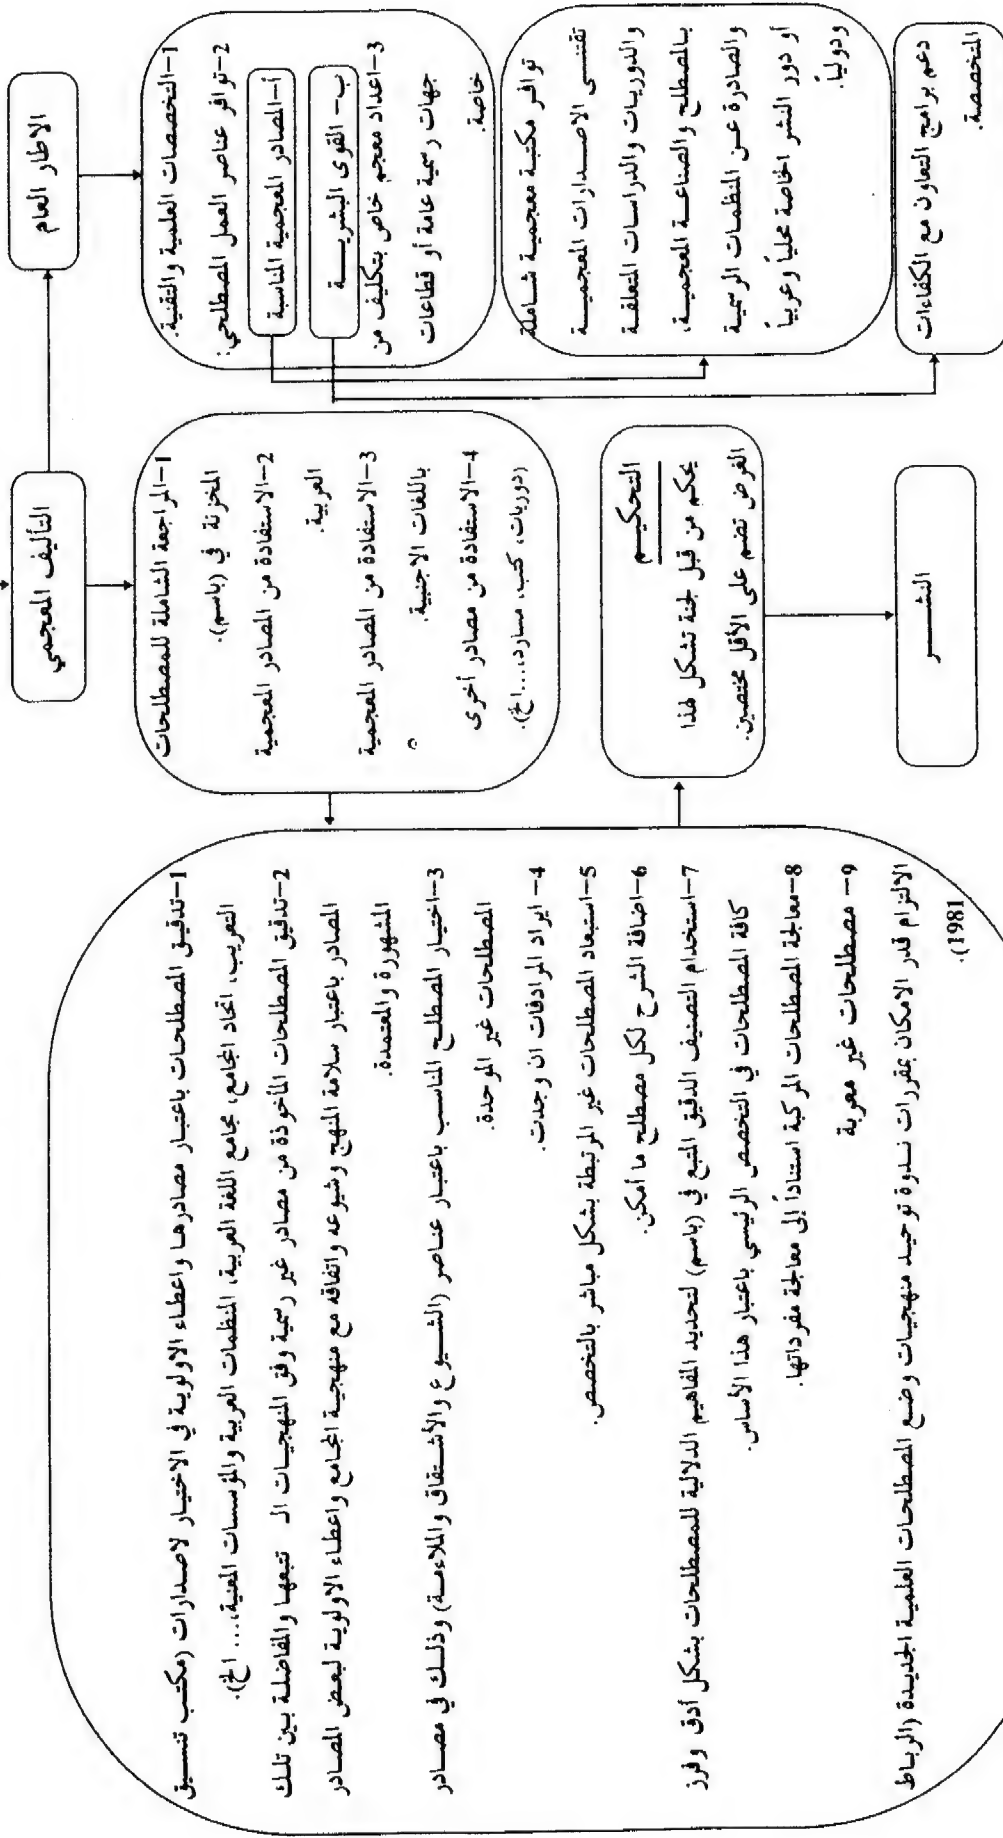 التأليف المعجمي
الاطار العام
1-التخصصات العلمية والتقنية.
2-توافر عناصر العمل المصطلحي:
أ-المصادر المعجمية المناسبة
ب- القوى البشريـــة
3-اعداد معجم خاص بتكليف من
جهات رسمية عامة أو قطاعات
خاصة.
توافـر مكتبـة معجميـة شـاملة
تقتنـى الاصـدارات المعجميـة
والدوريـات والدراسـات المتعلقـة
بـالمصطلح والصناعـة المعجميـة،
والصادرة عـن المنظمـات الرسمية
أو دور النشر الخاصة محلياً وعربياً
ودولياً.
دعم برامج التعاون مع الكفاءات
المتخصصة.
1-المراجعة الشاملة للمصطلحات
المخزنة في (باسم).
2-الاستفادة من المصادر المعجمية
العربية.
3-الاستفادة من المصادر المعجمية
باللغات الاجنبية.
4-الاستفادة من مصادر أخرى
(دوريات، كتب، مسارد....الخ).
1-تدقيـق المصطلحـات باعتبـار مصادرهـا واعطـاء الاولويـة في الاختيـار لاصـدارات (مكتـب تنسـيق
التعريب، اتحاد المجامع، مجامع اللغة العربية، المنظمات العربية والمؤسسات المعنية،... الخ).
2-تدقيق المصطلحات المأخوذة من مصادر غير رسمية وفق المنهجيـات الـ تتبعها والمفاضلـة بين تلـك
المصادر باعتبار سلامة المنهج وشيوعه واتفاقه مع منهجية المجامع واعطـاء الاولويـة لبعض المصادر
المشهورة والمعتمدة.
3-اختيـار المصطلـح المناسـب باعتبـار عناصـر (الشـيوع والأشـتقاق والملاءمـة) وذلـك في مصـادر
المصطلحات غير الموحدة.
4- ايراد المرادفات ان وجدت.
5-استبعاد المصطلحات غير المرتبطة بشكل مباشر بالتخصص.
6-اضافة الشرح لكل مصطلح ما أمكن.
7-استخدام التصنيف الدقيق المتبع في (باسم) لتحديد المفاهيم الدلالية للمصطلحات بشكل أدق وفرز
كافة المصطلحات في التخصص الرئيسي باعتبار هذا الأساس.
8-معالجة المصطلحات المركبة استناداً إلى معالجة مفرداتها.
9- مصطلحات غير معربة
الالتزام قدر الامكان بمقررات نـدوة توحيـد منهجيـات وضـع المصطلحات العلميـة الجديـدة (الربـاط
1981).
التحكيـم
يحكم من قبل لجنة تشكل لهذا
الغرض تضم على الأقل مختصين.
النشـــر